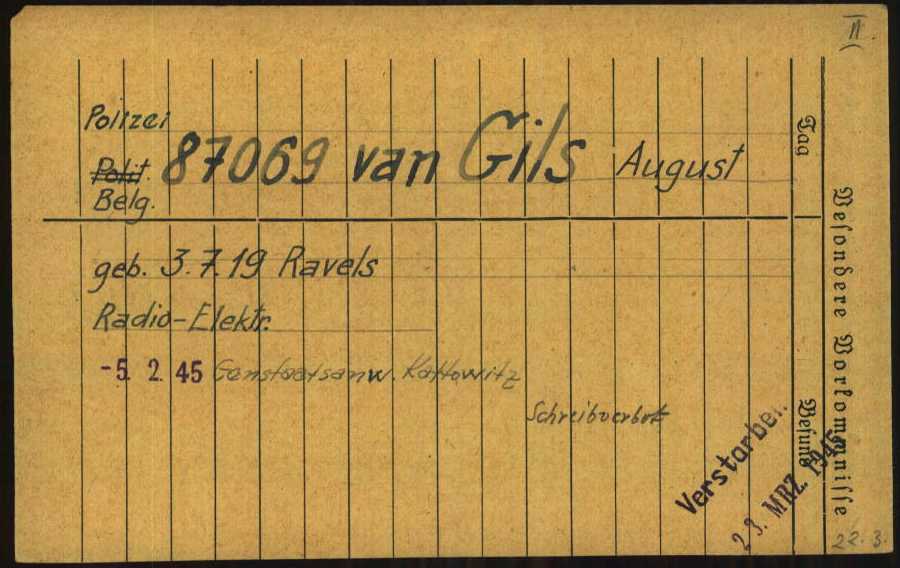 II.
Polizei
Polit. 87069 van Gils August
Belg.
geb. 3.7.19 Ravels
Radio-Elektr.
-5. 2. 45 Genstaatsanw. Kattowitz
Schreibverbot
Verstorben.
23. MRZ. 1945
22.3.
Tag
Befund
Besondere Vorkommnisse